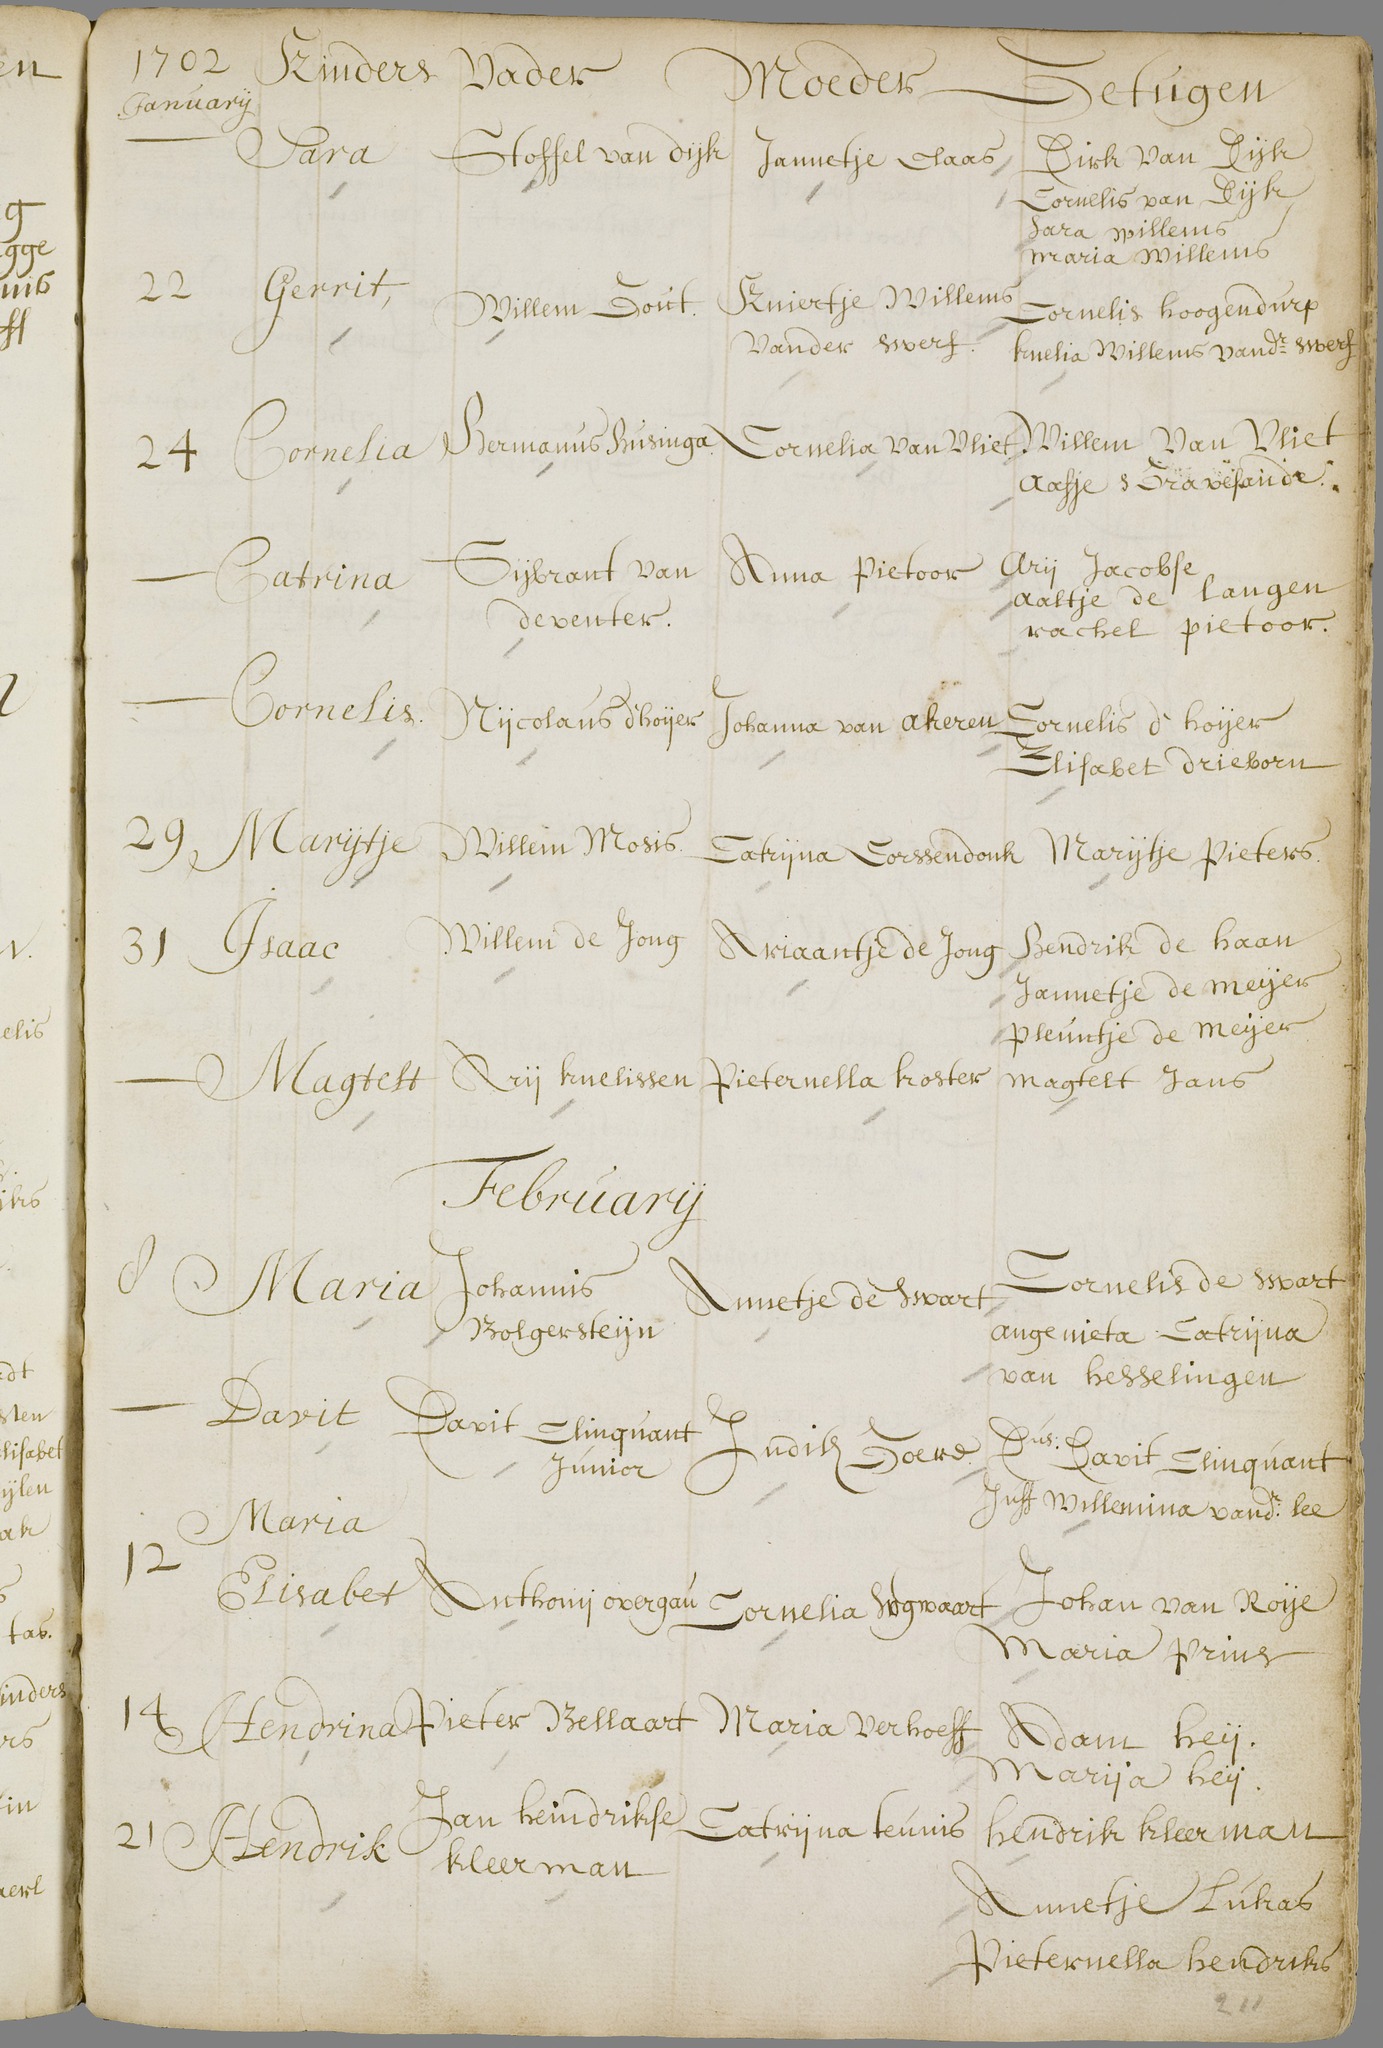 1702 Kinders Vader Moeder Getugen
January
— Sara Stoffel van dijk Jannetje Claas Dirk van Dijk
Cornelis van Dijk
Sara willems
maria Willems
22 Gerrit, Willem Gout. Kniertje Willems Cornelis hoogendurp
Vander werf. knelia Willems vandr werf
24 Cornelia Hermanus Businga. Cornelia van Vliet Willem Van Vliet
Aafje s Gravesande.
— Catrina Sijbrant van Anna Pietoor Arij Jacobse
deventer. Aaltje de langen
rachel pietoor.
— Cornelis. Nijcolaus d'hoijer Johanna van akeren Cornelis d' hoijer
Elisabet drieborn
29 Marijtje Willem Mosis. Catrijna Corssendonk Marijtje Pieters.
31 Isaac Willem de Jong Ariaantje de Jong Hendrik de haan
Jannetje de meijer
Pleuntje de meijer
— Magtelt Arij knelissen Pieternella koster magtelt Jans
Februarij
8 Maria Johannis Annetje de Swart Cornelis de swart
Bolgersteijn angenieta Catrijna
van hesselingen
— Davit Davit Clinquant Judith Goere. Dus: Davit Clinquant
Junior Juff Willemina vandr. lee
Maria
12
Elisabet Anthonij overgau Cornelia Johan van Roije
Maria Prins
14 Hendrina Pieter Bellaart Maria Verhoeff Adam heij.
Marija heij.
21 Hendrik Jan heindrikse Catrijna teunis hendrik kleerman
kleerman
Annetje Lukas
Pieternella hendriks
211